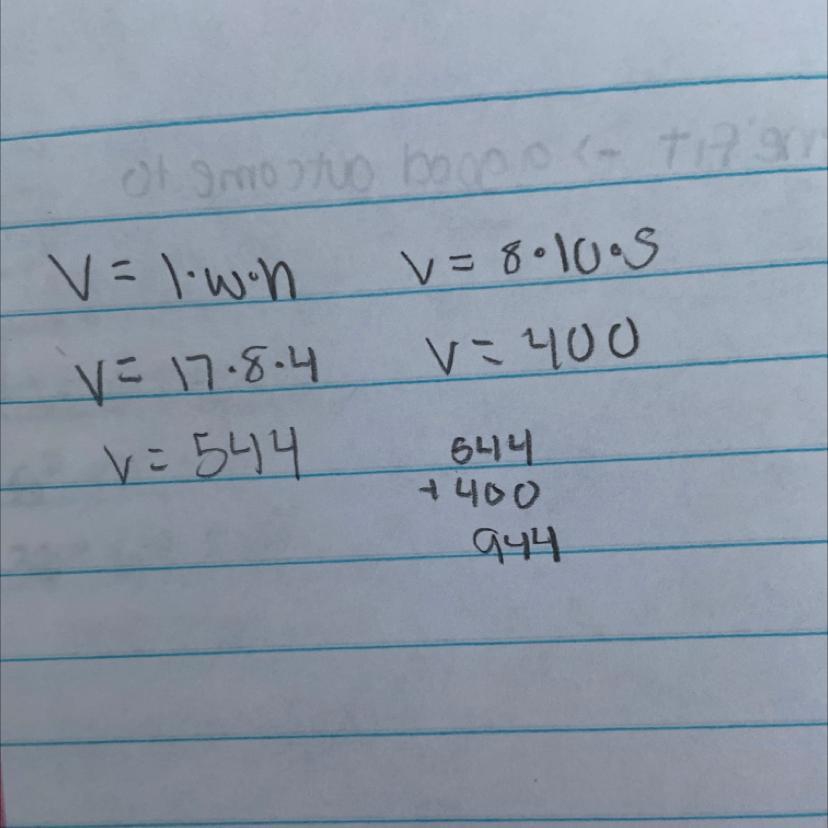 V = l·w·h
V = 17·8·4
V = 544
V = 8·10·5
V = 400
544
+ 400
944